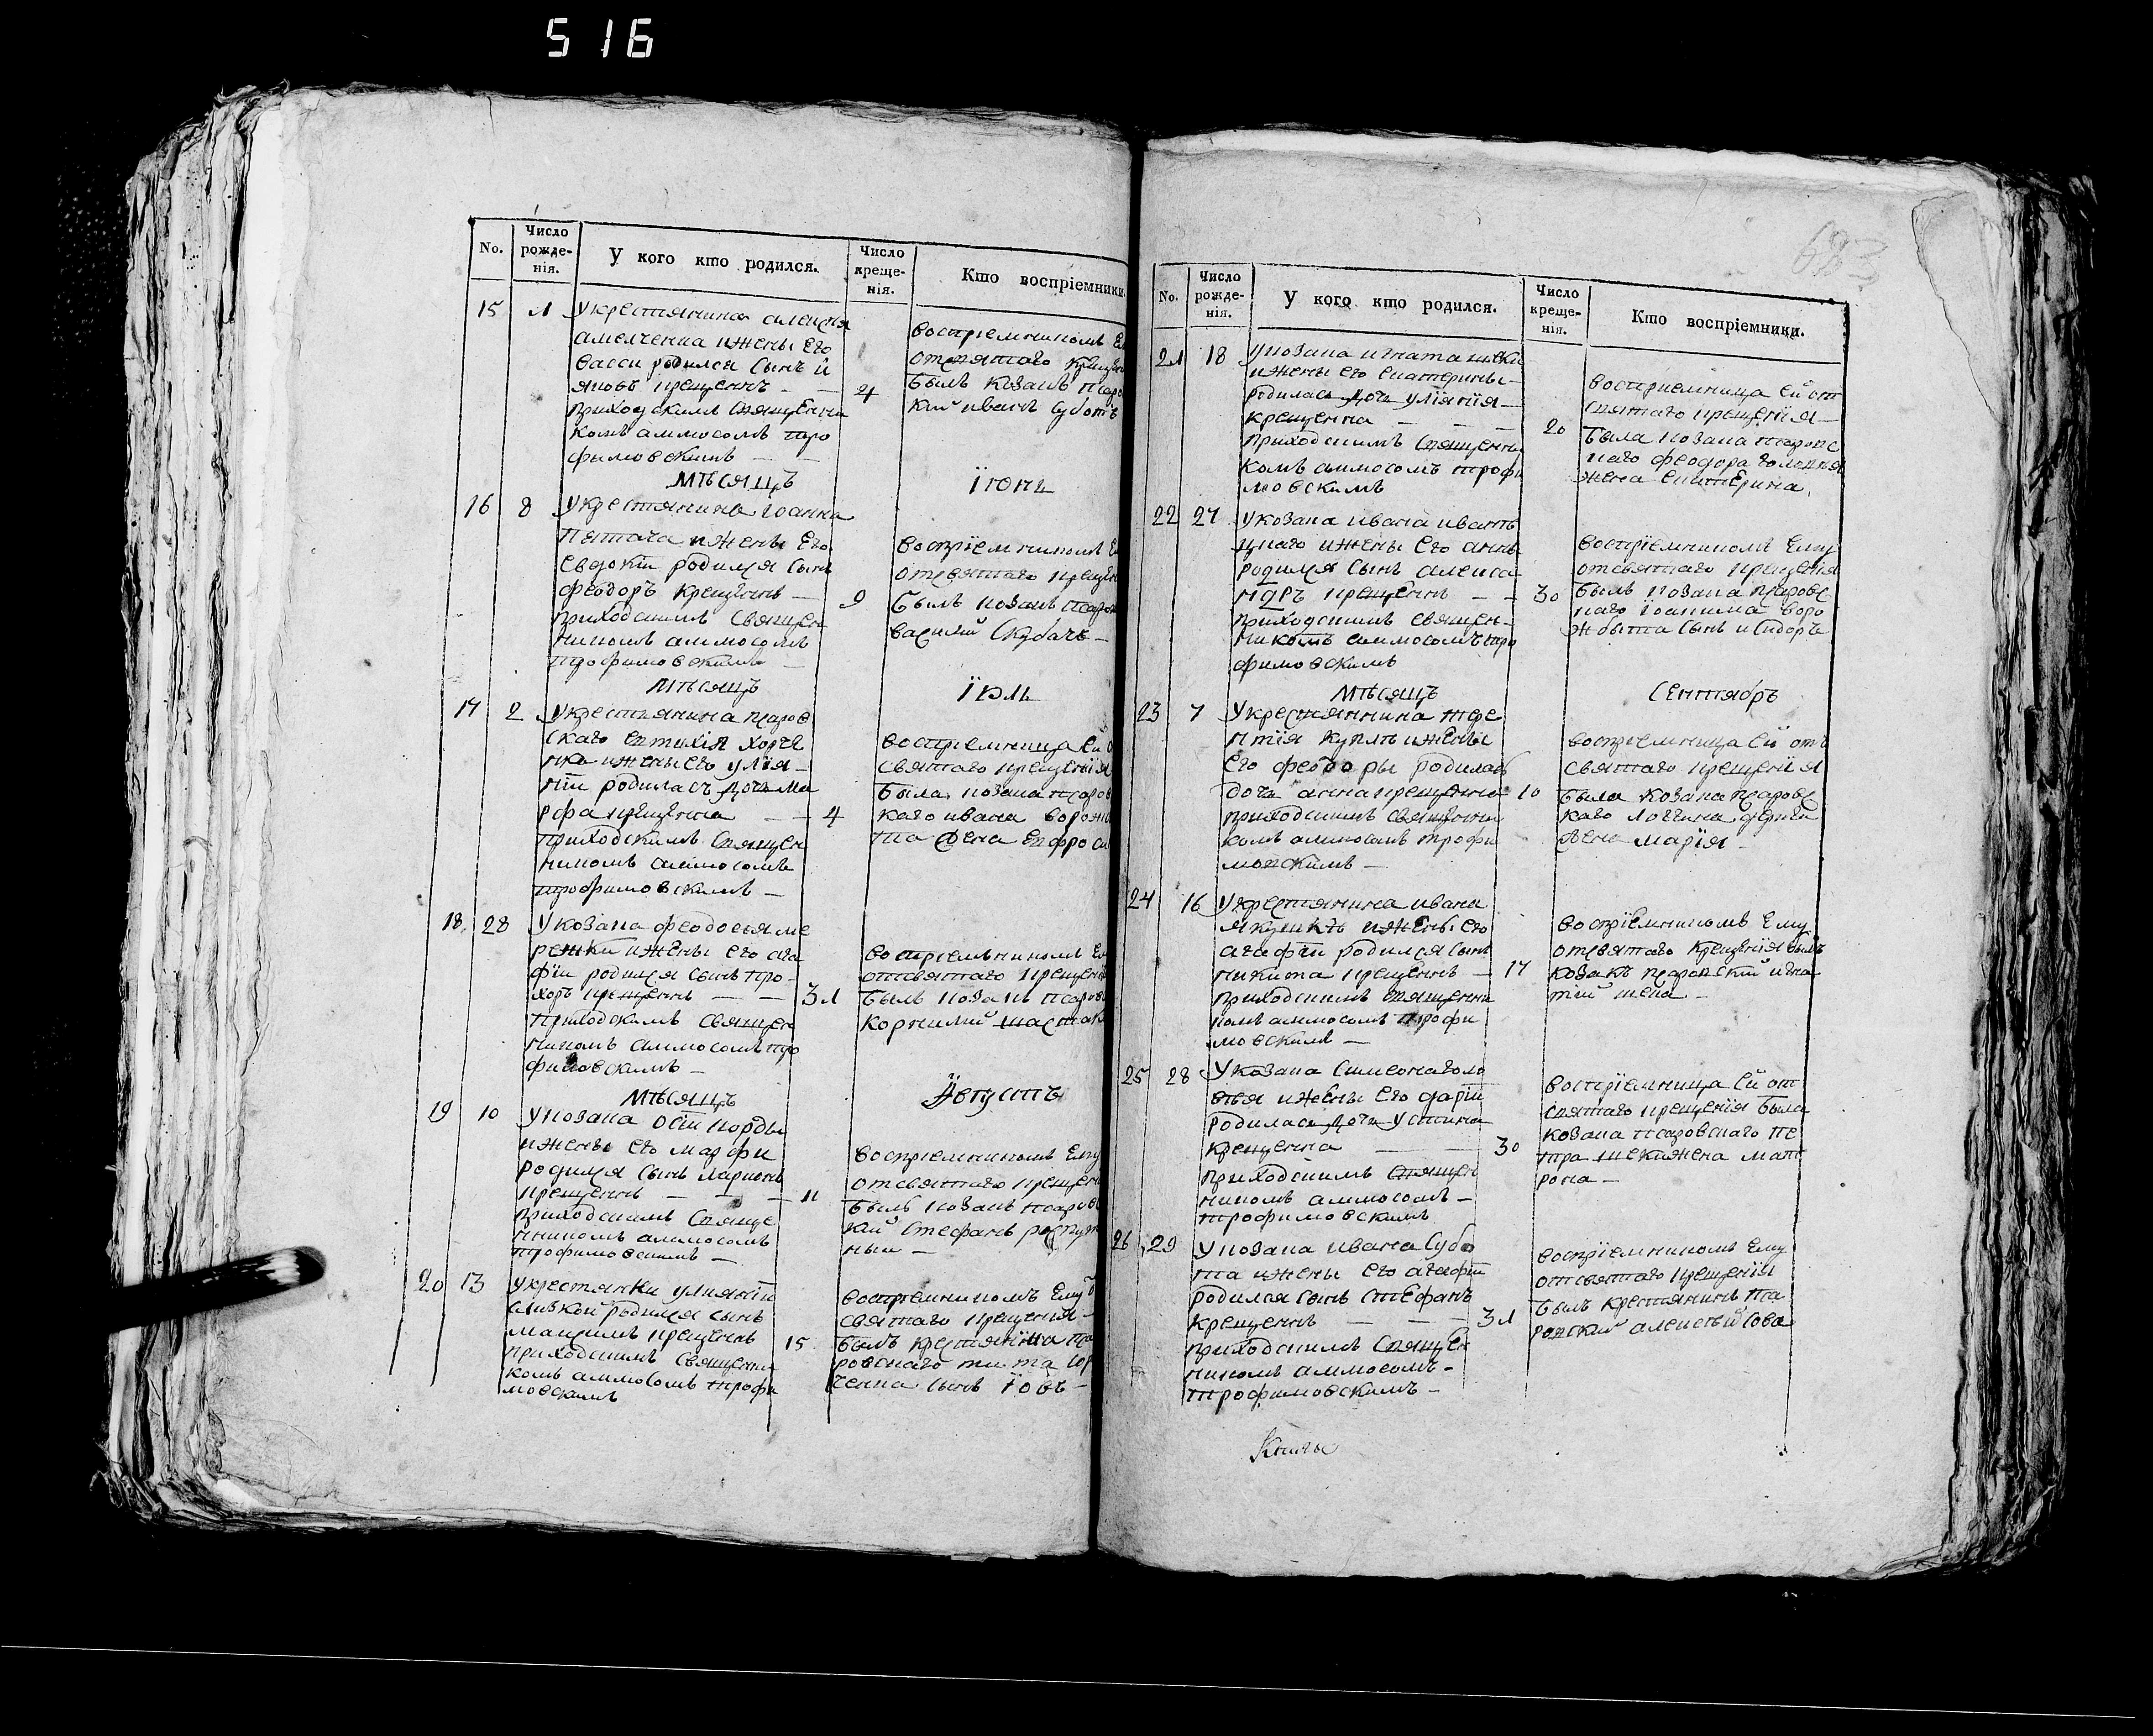 516
No.
Число рожде-нія.
У кого кто родился.
Число креще-нія.
Кто воспріемники.
15 1 У крестянина алексѣя
амелченка и жены его
васси родился сынъ и
яковъ крещеннъ — — 4
приходскимъ священни
комъ аммосомъ тро
фимовскимъ — —
воспріемникомъ ем
отсвятаго крещен
былъ козакъ псаро
кий иванъ субота
Мѣсяцъ Їюнь
16 8 У крестянина иоанна
пеппача и жены его
евдокіи родился сынъ
феодоръ крещеннъ — 9
приходскимъ священ
никомъ аммосомъ
трофимовскимъ —
воспріемникомъ ем
отсвятаго крещен
былъ козакъ псаров
василий скубачъ —
Мѣсяцъ Їюль
17 2 У крестянина псаров
скаго евтихія хорче
нка и жены его улія
ніи родиласъ дочь ма
рфа крещенна — — 4
приходскимъ священ
никомъ аммосомъ
трофимовскимъ —
воспріемница ей о
святаго крещенія
была козака псаров
каго ивана ворож
та жена евфроси
18 28 У козака феодосія ме
режки и жены его ага
фіи родился сынъ про
хоръ крещеннъ — — 31
приходскимъ священ
никомъ аммосомъ тро
фимовскимъ —
воспріемникомъ ем
отсвятаго крещені
былъ козакъ псаров
корнилий шастак
Мѣсяцъ Августъ
19 10 У козака
и жены его марфи
родился сынъ ларионъ
крещеннъ — — — 11
приходскимъ свяще
нникомъ аммосомъ
трофимовскимъ —
воспріемникомъ ему
отсвятаго крещен
былъ козакъ псаровс
кий стефанъ распут
ный —
20 13 У крестянки улияніи
слизкой родился сынъ
максимъ крещеннъ 15
приходскимъ священни
комъ аммосомъ трофи
мовскимъ
воспріемникомъ ему о
святаго крещенія —
былъ крестянина пса
ровскаго тита
ченка сынъ Їовъ —
No.
Число рожде-нія.
У кого кто родился.
Число креще-нія.
Кто воспріемники.
21 18 У козака игната
и жены его екатерины
родилась дочь улїянїя —
крещенна — — — 20
приходскимъ священни
комъ аммосомъ трофи
мовскимъ
воспріемница ей от
святаго крещенїя —
была козака псаровс
каго феодора
жена екатерина
22 27 У козака ивана
цкаго и жены его анны
родился сынъ алекса
ндръ крещеннъ — — 30
приходскимъ священ
никомъ аммосомъ тро
фимовскимъ
воспрїемникомъ ему
отсвятаго крещенїя
былъ козака псаровс
каго їоакима воро
жбыта сынъ исидоръ
Мѣсяцъ Сентябръ
23 7 У крестяннина тере
нтїя и жены
его феодоры родилась
дочь анна крещенна 10
приходскимъ священни
комъ аммосомъ трофи
мовскимъ —
воспрїемница ей отъ
святаго крещенїя
была козака псаровс
каго логгина
жена марїя —
24 16 У крестянина ивана
и жены его
агафїи родился сынъ
никита крещеннъ — 17
приходскимъ священни
комъ аммосомъ трофи
мовскимъ —
воспрїемникомъ ему
отсвятаго крещенїя былъ
козакъ псаровский игна
тий шека —
25 28 У козака симеона голо
и жены его дарїи
родилась дочь устина
крещенна — — 30
приходскимъ священ
никомъ аммосомъ —
трофимовскимъ
воспрїемница ей от
святаго крещенїя была
козака псаровскаго пе
тра шеки жена мат
рона —
26 29 У козака ивана субо
та и жены его агафїи
родился сынъ стефанъ
крещеннъ — — — 31
приходскимъ священ
никомъ аммосомъ —
трофимовскимъ —
воспрїемникомъ ему
отсвятаго крещенїя
былъ крестянинъ пса
ровский алексѣй сова